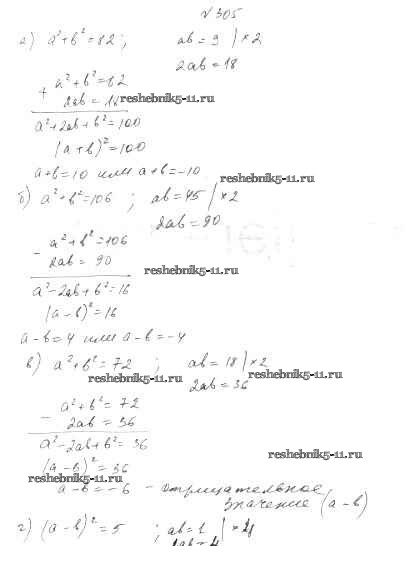 №305
а) a²+b²=82; ab=9 | ×2
2ab=18
+ a²+b²=82
2ab=18 reshebnik5-11.ru
a²+2ab+b²=100
(a+b)²=100
a+b=10 или a+b=-10
reshebnik5-11.ru
б) a²+b²=106; ab=45 | ×2
2ab=90
- a²+b²=106
2ab=90 reshebnik5-11.ru
a²-2ab+b²=16
(a-b)²=16
a-b=4 или a-b=-4
в) a²+b²=72; ab=18 | ×2
reshebnik5-11.ru 2ab=36 reshebnik5-11.ru
- a²+b²=72
2ab=36
a²-2ab+b²=36
reshebnik5-11.ru
(a-b)²=36
reshebnik5-11.ru
a-b=-6 - отрицательное
значение (a-b)
г) (a-b)²=5; ab=1 | ×4
4ab=4